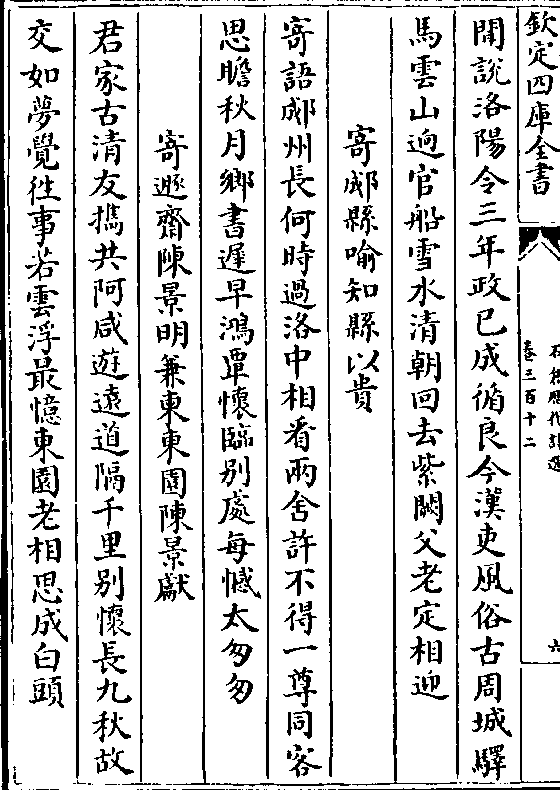 欽定四庫全書
卷三百十二
六
聞說洛陽令三年政已成循良今漢吏風俗古周城驛
馬雲山逈官船雪水清朝回去紫闕父老定相迎
寄郕縣喻知縣以貴
寄語郕州長何時過洛中相看兩舍許不得一尊同客
思瞻秋月鄉書遲早鴻覃懷臨别處每憾太匆匆
寄遯齋陳景明兼柬東園陳景獻
君家古清友攜共阿咸遊遠道隔千里别懷長九秋故
交如夢覺徃事若雲浮最憶東園老相思成白頭